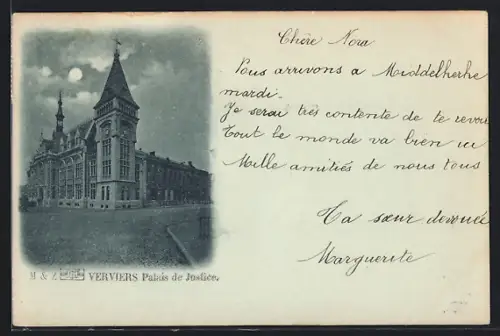 Chère Nora
Vous arrivons a Middelkerke
mardi.
Je serai très contente de te revoir
Tout le monde va bien ici
Mille amitiés de nous tous
Ta sœur dévouée
Marguerite
M & Z VERVIERS Palais de Justice.